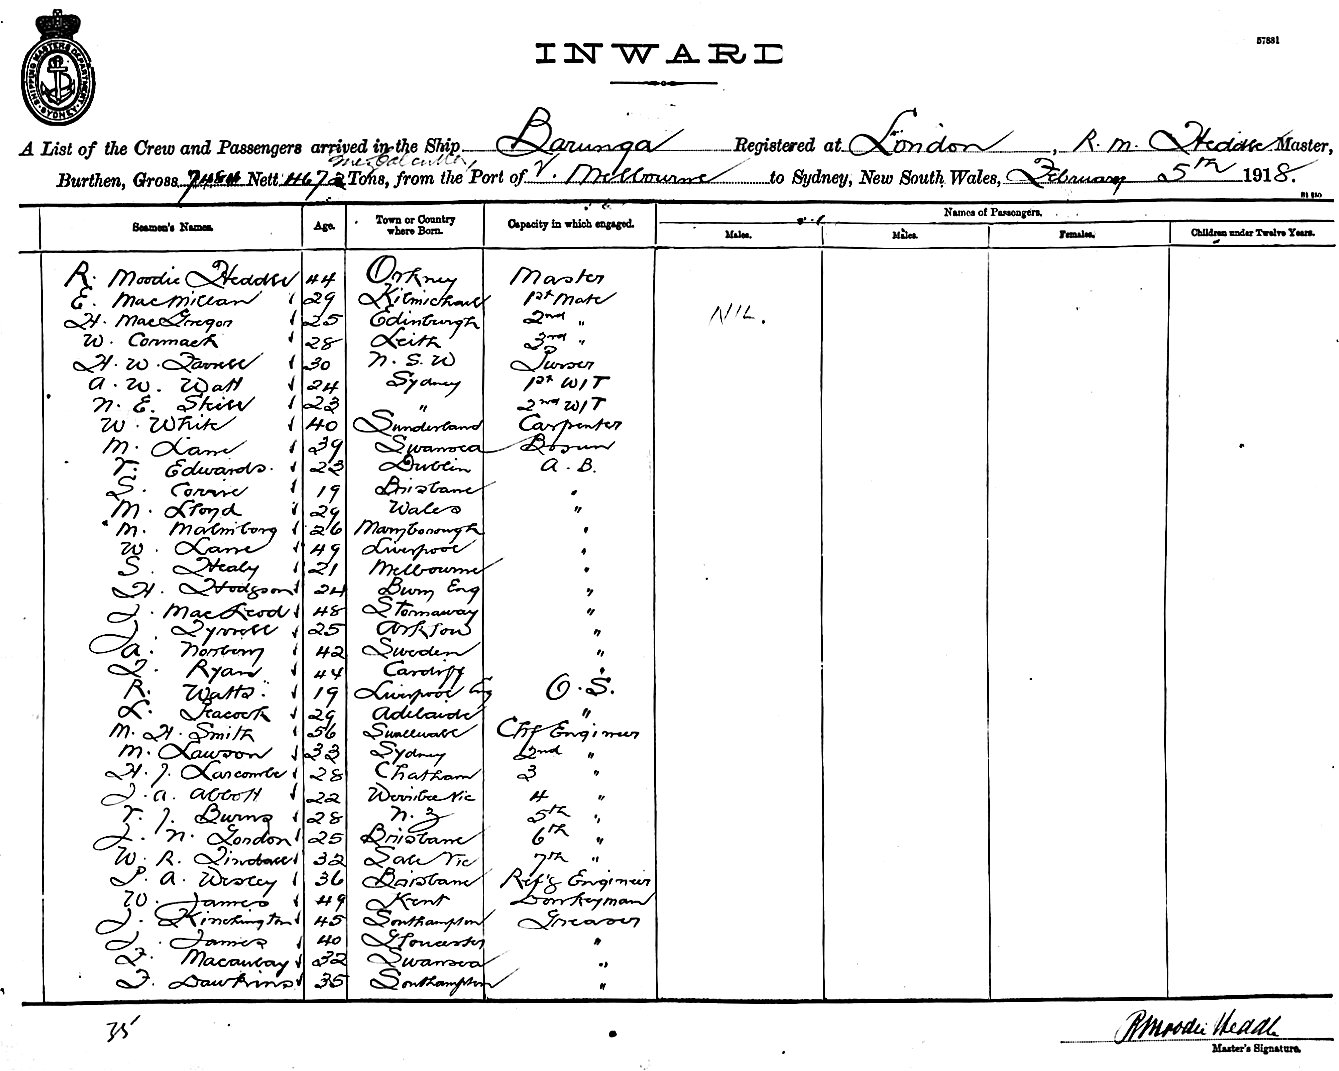 SHIPPING MASTERS DEPARTMENT SYDNEY
INWARD
57881
A List of the Crew and Passengers arrived in the Ship Barunga Registered at London, R. M. Heddle Master,
Burthen, Gross 7484 Nett 4672 Tons, from the Port of V. Melbourne to Sydney, New South Wales, February 5th 1918.
Seamen's Names. Age. Town or Country where Born. Capacity in which engaged. Names of Passengers.
Males. Males. Females. Children under Twelve Years.
R. Moodie Heddle 44 Orkney Master
E. MacMillan 29 Kilmichael 1st Mate
H. MacGregor 25 Edinburgh 2nd "
NIL.
W. Cormack 28 Leith 3rd "
H. W. 30 N. S. W Purser
A. W. Watt 24 Sydney 1st W/T
N. E. 23 " 2nd W/T
W. White 40 Sunderland Carpenter
M. Lane 39 Swansea Bosun
T. Edwards. 23 Dublin A. B.
S. 19 Brisbane "
M. Lloyd 29 Wales "
M. Malmborg 26 Maryborough "
W. Lane 49 Liverpool "
S. Healy 21 Melbourne "
H. Hodgson 24 Bury Eng "
J. MacLeod 48 Stornaway "
J. 25 "
A. Norberg 42 Sweden "
Ryan 44 Cardiff "
R. Watts. 19 Liverpool Eng O. S.
L. Peacock 29 Adelaide "
M. H. Smith 56 Chf Engineer
M. Lawson 33 Sydney 2nd "
H. J. Larcombe 28 Chatham 3 "
J. A. Abbott 22 Werribee Vic 4 "
T. J. Burns 28 N. Z 5th "
J. N. London 25 Brisbane 6th "
W. R. 32 Sale Vic 7th "
P. A. Wesley 36 Brisbane Ref'g Engineer
W. James 49 Kent Donkeyman
J. Kinchington 45 Southampton Greaser
J. James 40 Gloucester "
F. Macaulay 32 Swansea "
F. Dawkins 35 Southampton "
35
R Moodie Heddle
Master's Signature.